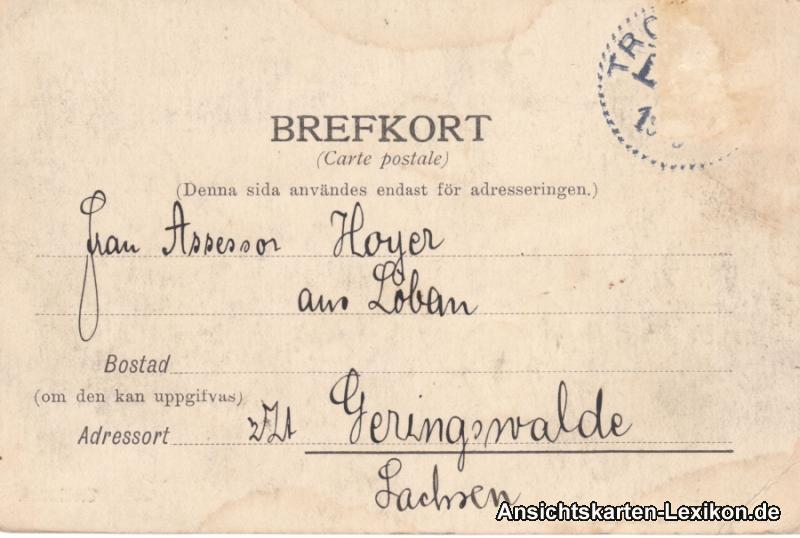 TRO
BREFKORT
(Carte postale)
(Denna sida användes endast för adresseringen.)
Frau Assessor Hoyer
aus Löbau
Bostad
(om den kan uppgifvas)
Adressort z.Zt Geringswalde
Sachsen
Ansichtskarten-Lexikon.de